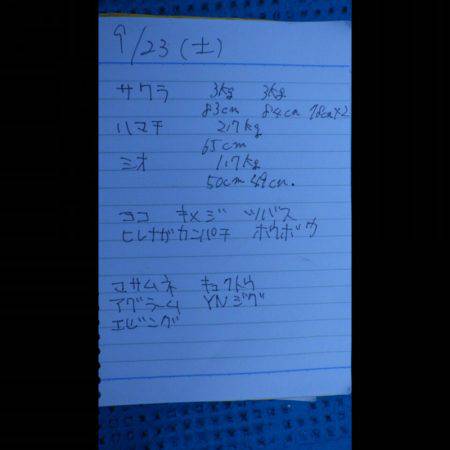 9/23(土)
サワラ 3kg 3kg
83cm 84cm 78cm×2
ハマチ 2.7kg
65cm
ミオ 1.7kg
50cm 49cm.
ヨコ キメジ ツバス
ヒレナガカンパチ ホウボウ
マサムネ キョクトウ
アグラーム YNジグ
エビング